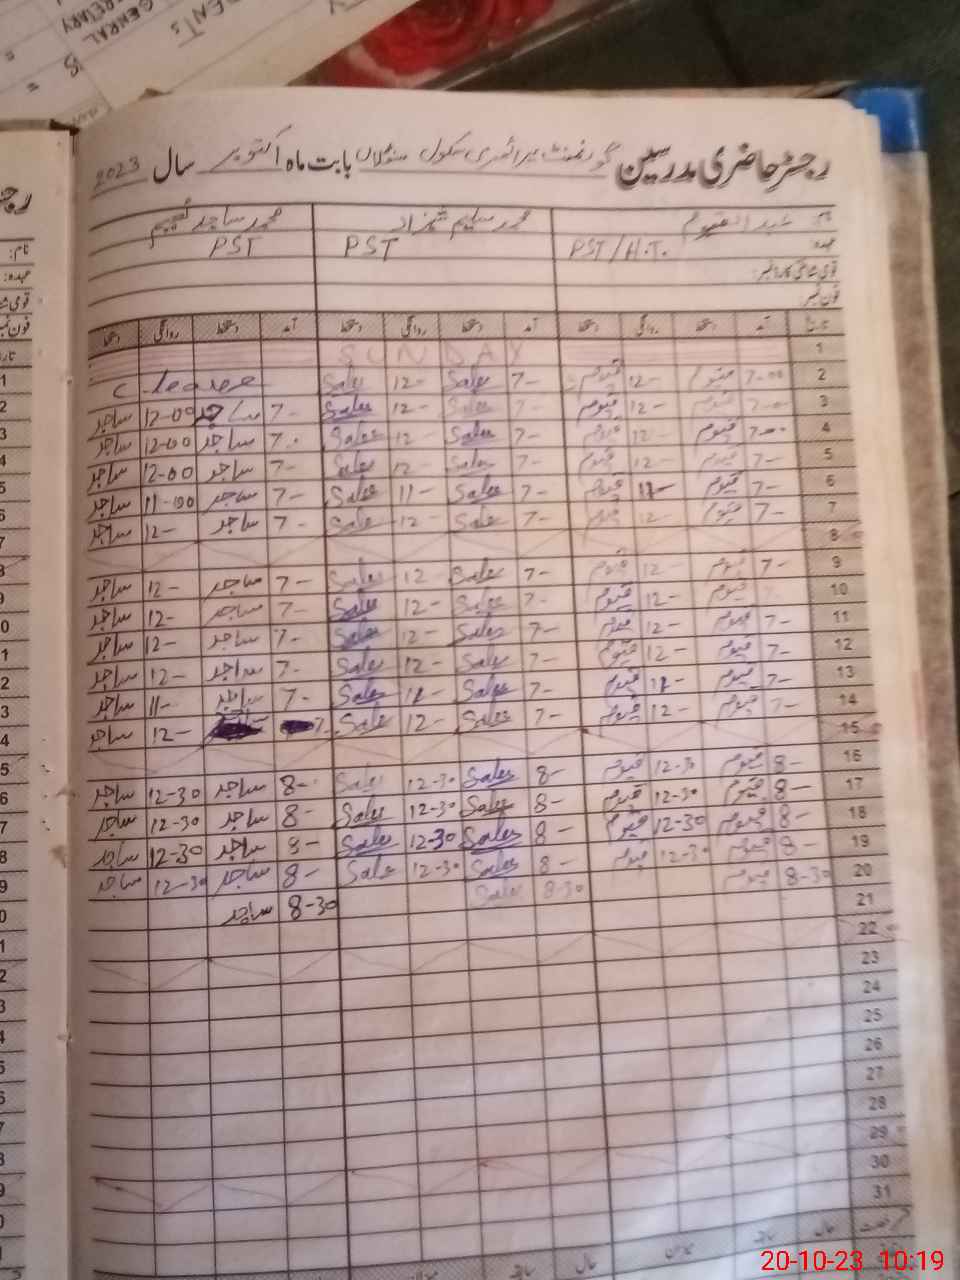 GENERAL
رجسٹر حاضری مدرسین گورنمنٹ پرائمری سکول بابت ماہ اکتوبر سال 2023
نام: عبدالقیوم محمد سلیم شہزاد محمد ساجد نعیم
عہدہ PST/H.T. PST PST
قومی شناختی کارڈ نمبر:
فون نمبر:
تاریخ آمد دستخط روانگی دستخط آمد دستخط روانگی دستخط آمد دستخط روانگی دستخط
1 SUNDAY
2 7-00 قیوم 12- قیوم 7- Sales 12- Sales
3 7-00 قیوم 12- قیوم 7- Sales 12- Sales 7- ساجد 12-00 ساجد
4 7-00 قیوم 12- قیوم 7- Sales 12- Sales 7- ساجد 12-00 ساجد
5 7- قیوم 12- قیوم 7- Sales 12- Sales 7- ساجد 12-00 ساجد
6 7- قیوم 11- قیوم 7- Sales 11- Sales 7- ساجد 11-00 ساجد
7 7- قیوم 12- قیوم 7- Sales 12- Sales 7- ساجد 12- ساجد
8
9 7- قیوم 12- قیوم 7- Sales 12- Sales 7- ساجد 12- ساجد
10 قیوم 12- قیوم 7- Sales 12- Sales 7- ساجد 12- ساجد
11 7- قیوم 12- قیوم 7- Sales 12- Sales 7- ساجد 12- ساجد
12 7- قیوم 12- قیوم 7- Sales 12- Sales 7- ساجد 12- ساجد
13 7- قیوم قیوم 7- Sales Sales 7- ساجد 11- ساجد
14 7- قیوم 12- قیوم 7- Sales 12- Sale 7- 12- ساجد
15
16 8- قیوم 12-30 قیوم 8- Sales 12-30 Sales 8- ساجد 12-30 ساجد
17 8- قیوم 12-30 قیوم 8- Sales 12-30 Sales 8- ساجد 12-30 ساجد
18 8- قیوم 12-30 قیوم 8- Sales 12-30 Sales 8- ساجد 12-30 ساجد
19 8- قیوم 12-30 قیوم 8- Sales 12-30 Sales 8- ساجد 12-30 ساجد
20 8-30 قیوم 8-30 Sales 8-30 ساجد
21
22
23
24
25
26
27
28
29
30
31
حال سابقہ میزان حال سابقہ میزان
20-10-23 10:19